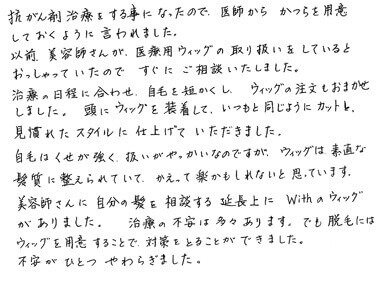 抗がん剤治療をする事になったので、医師から かつらを用意
しておくように 言われました。
以前、美容師さんが、医療用ウィッグの 取り扱いをしていると
おっしゃっていたので すぐに ご相談いたしました。
治療の日程に合わせ、自毛を短かくし、 ウィッグの注文もおまかせ
しました。 頭にウィッグを装着して、いつもと同じようにカットし、
見慣れたスタイルに 仕上げて いただきました。
自毛はくせが強く、扱いがやっかいなのですが、ウィッグは素直な
髪質に整えられていて、かえって楽かもしれないと思っています。
美容師さんに 自分の髪を相談する 延長上に Withのウィッグ
がありました。 治療の不安は多々あります。でも脱毛には
ウィッグを用意することで、対策をとることができました。
不安がひとつ やわらぎました。